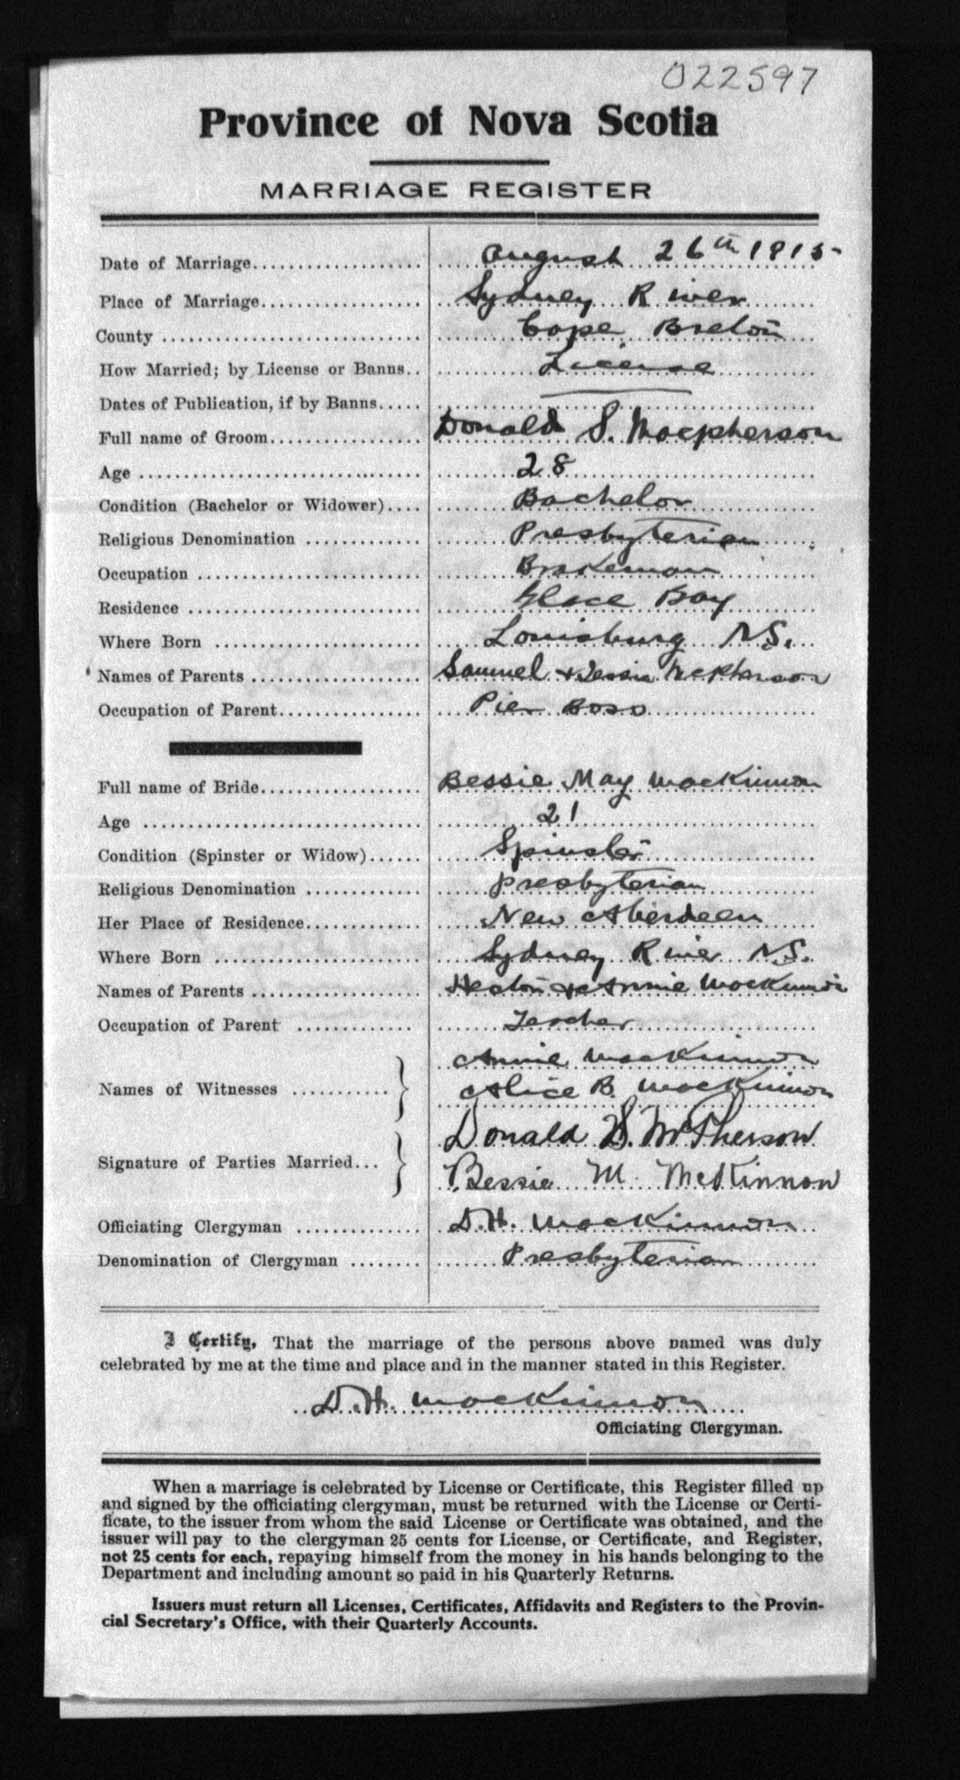 022597
Province of Nova Scotia
MARRIAGE REGISTER
Date of Marriage.................... August 26th 1915
Place of Marriage................... Sydney River
County .............................. Cape Breton
How Married; by License or Banns.. License
Dates of Publication, if by Banns..... ———
Full name of Groom................. Donald S. Macpherson
Age ................................. 28
Condition (Bachelor or Widower).... Bachelor
Religious Denomination ............. Presbyterian
Occupation .......................... Brakeman
Residence ........................... Glace Bay
Where Born ........................ Louisburg N.S.
Names of Parents .................... Samuel & Jessie McPherson
Occupation of Parent................ Pier Boss
Full name of Bride................... Bessie May MacKinnon
Age ................................. 21
Condition (Spinster or Widow)...... Spinster
Religious Denomination ............. Presbyterian
Her Place of Residence.............. New Aberdeen
Where Born ........................ Sydney River N.S.
Names of Parents .................... Hector & Annie MacKinnon
Occupation of Parent .............. Teacher
Names of Witnesses ........... } Annie MacKinnon
Alice B. MacKinnon
Signature of Parties Married... } Donald S. McPherson
Bessie M. McKinnon
Officiating Clergyman .............. D.H. MacKinnon
Denomination of Clergyman ........ Presbyterian
I Certify, That the marriage of the persons above named was duly
celebrated by me at the time and place and in the manner stated in this Register.
D.H. MacKinnon
Officiating Clergyman.
When a marriage is celebrated by License or Certificate, this Register filled up
and signed by the officiating clergyman, must be returned with the License or Certi-
ficate, to the issuer from whom the said License or Certificate was obtained, and the
issuer will pay to the clergyman 25 cents for License, or Certificate, and Register,
not 25 cents for each, repaying himself from the money in his hands belonging to the
Department and including amount so paid in his Quarterly Returns.
Issuers must return all Licenses, Certificates, Affidavits and Registers to the Provin-
cial Secretary's Office, with their Quarterly Accounts.